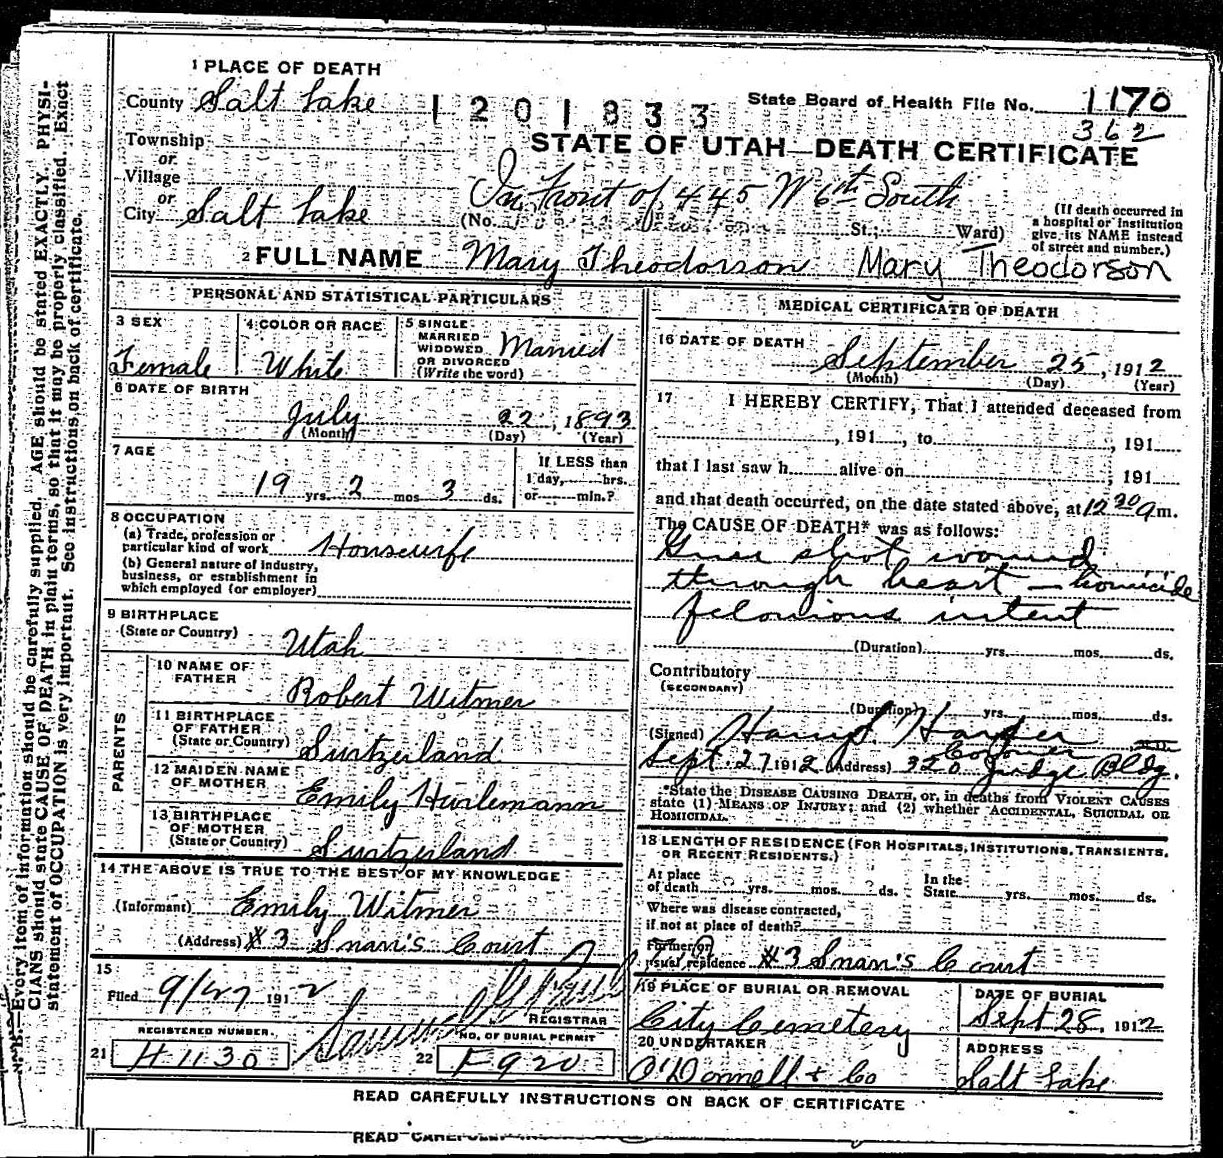 1 PLACE OF DEATH
County Salt Lake 1201833 State Board of Health File No. 1170
362
Township
or
Village
or
City Salt Lake
STATE OF UTAH—DEATH CERTIFICATE
In Front of 445 W 6th South
(No. St.; Ward)
(If death occurred in a hospital or institution give its NAME instead of street and number.)
2 FULL NAME Mary Theodorson Mary Theodorson
PERSONAL AND STATISTICAL PARTICULARS
3 SEX Female
4 COLOR OR RACE White
5 SINGLE MARRIED WIDOWED OR DIVORCED (Write the word) Married
6 DATE OF BIRTH
July 22, 1893
(Month) (Day) (Year)
7 AGE
19 yrs. 2 mos. 3 ds.
If LESS than 1 day, hrs. or min.?
8 OCCUPATION
(a) Trade, profession or particular kind of work Housewife
(b) General nature of industry, business, or establishment in which employed (or employer)
9 BIRTHPLACE
(State or Country) Utah
PARENTS
10 NAME OF FATHER Robert Witmer
11 BIRTHPLACE OF FATHER (State or Country) Switzerland
12 MAIDEN NAME OF MOTHER Emily Hurlemann
13 BIRTHPLACE OF MOTHER (State or Country) Switzerland
14 THE ABOVE IS TRUE TO THE BEST OF MY KNOWLEDGE
(Informant) Emily Witmer
(Address) #3 Snarr's Court
15
Filed 9/27 1912
REGISTRAR
REGISTERED NUMBER. NO. OF BURIAL PERMIT
21 H1130 22 F920
MEDICAL CERTIFICATE OF DEATH
16 DATE OF DEATH
September 25, 1912
(Month) (Day) (Year)
17 I HEREBY CERTIFY, That I attended deceased from
, 191 , to , 191
that I last saw h alive on , 191
and that death occurred, on the date stated above, at 12 20 a m.
The CAUSE OF DEATH* was as follows:
Gun shot wound
through heart — homicide
felonious intent
(Duration) yrs. mos. ds.
Contributory
(SECONDARY)
(Duration) yrs. mos. ds.
(Signed) Harry S. Harper
Coroner
Sept. 27 1912 (Address) 320 Judge Bldg.
*State the DISEASE CAUSING DEATH, or, in deaths from VIOLENT CAUSES
state (1) MEANS OF INJURY; and (2) whether ACCIDENTAL, SUICIDAL OR
HOMICIDAL.
18 LENGTH OF RESIDENCE (FOR HOSPITALS, INSTITUTIONS, TRANSIENTS,
OR RECENT RESIDENTS.)
At place of death yrs. mos. ds. In the State yrs. mos. ds.
Where was disease contracted,
if not at place of death?
Former or
usual residence #3 Snarr's Court
19 PLACE OF BURIAL OR REMOVAL
City Cemetery
DATE OF BURIAL
Sept 28, 1912
20 UNDERTAKER
O'Donnell & Co
ADDRESS
Salt Lake
READ CAREFULLY INSTRUCTIONS ON BACK OF CERTIFICATE
N. B.—Every item of information should be carefully supplied. AGE should be stated EXACTLY. PHYSI-
CIANS should state CAUSE OF DEATH in plain terms, so that it may be properly classified. Exact
statement of OCCUPATION is very important. See instructions on back of certificate.